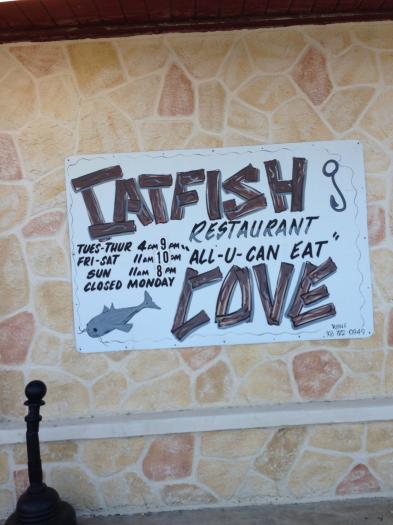 CATFISH
RESTAURANT
TUES-THUR 4 PM 9 PM
FRI-SAT 11 AM 10 PM
SUN 11 AM 8 PM
CLOSED MONDAY
"ALL-U-CAN EAT"
COVE
0949